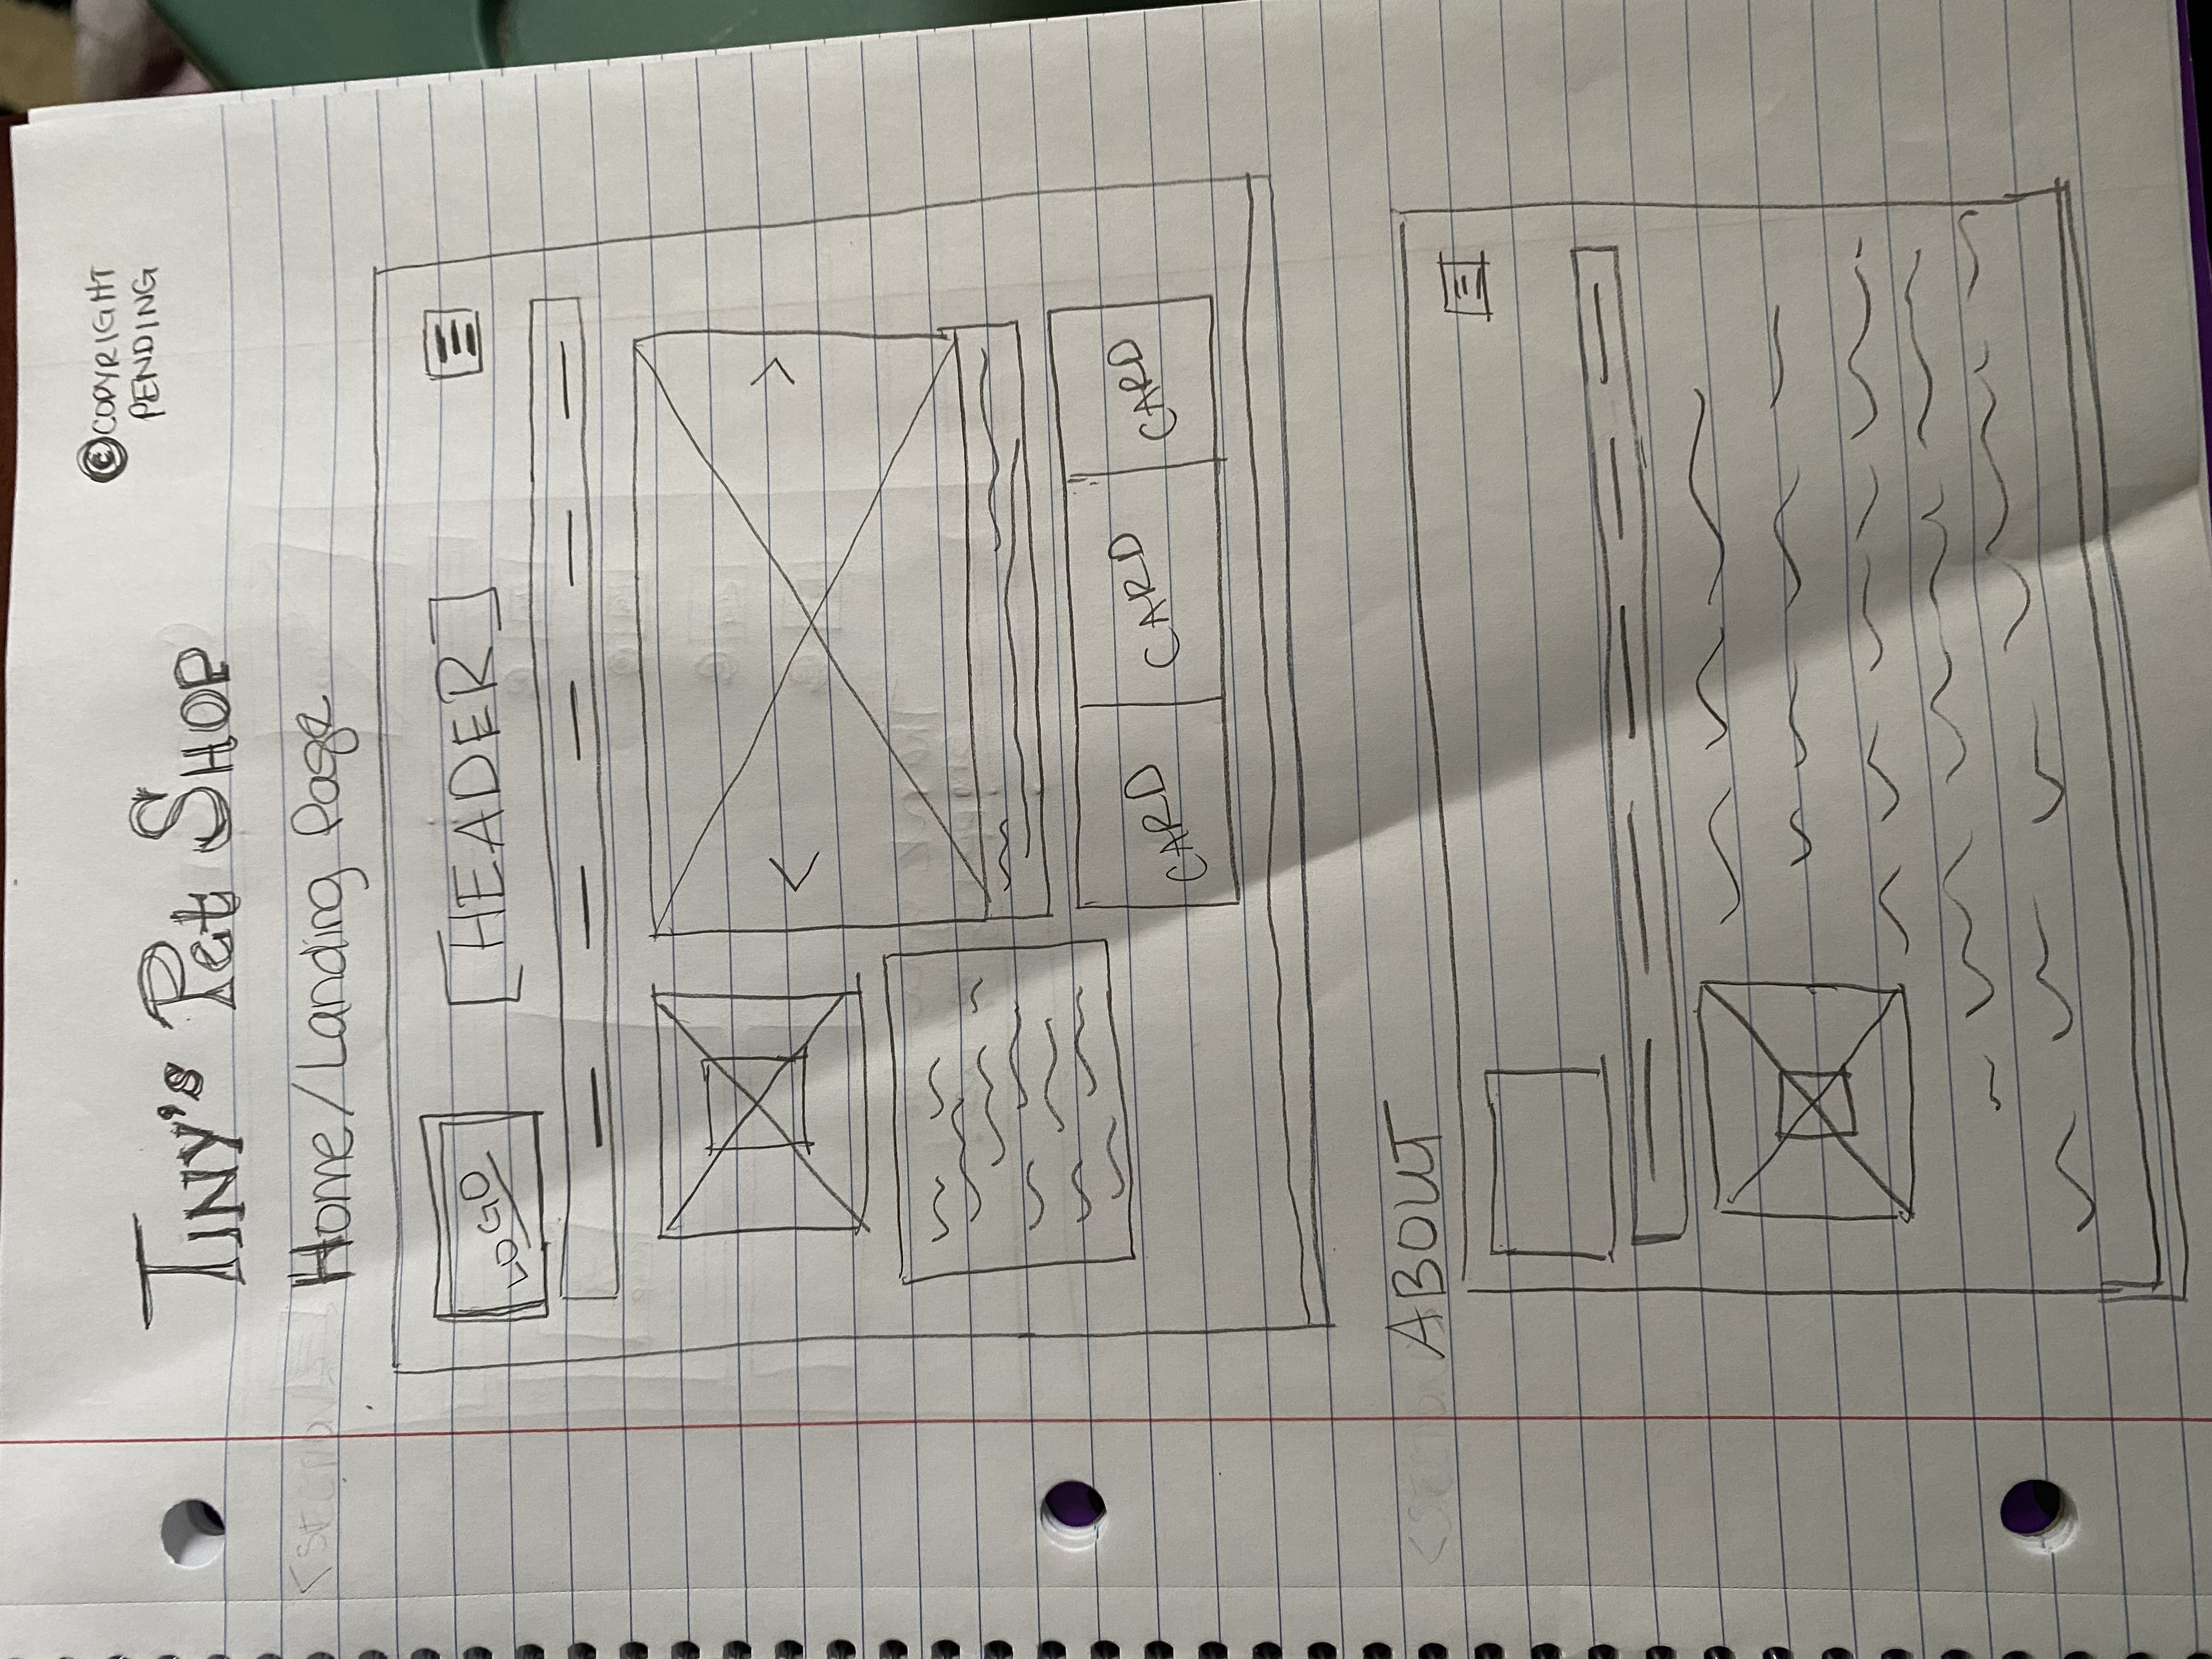 ©COPYRIGHT
PENDING
TINY'S Pet SHOP
Home/Landing Page
LOGO
[HEADER]
< >
CARD CARD CARD
ABOUT